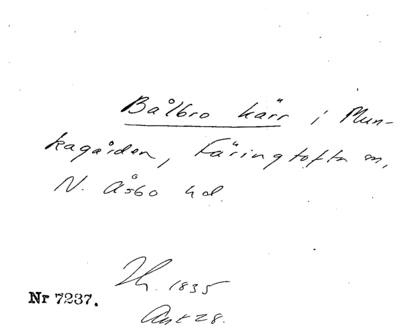 Bålbro kärr i Mun-
kagården, Färingtofta sn,
N. Åsbo hd.
1835
Nr 7237.
Akt 28.